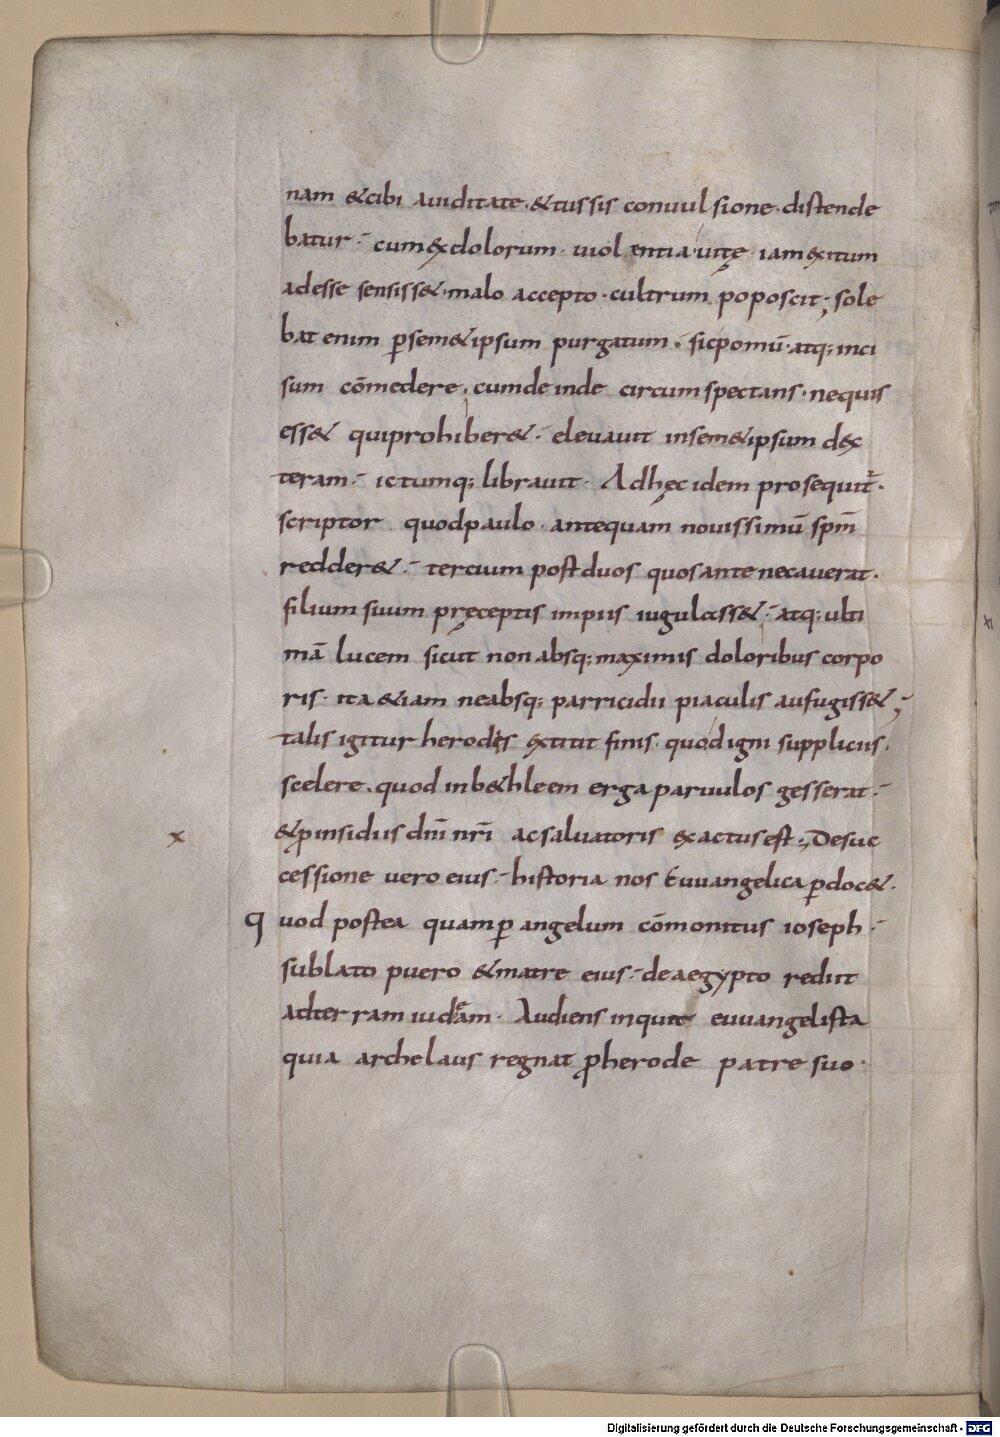 nam &cibi auiditate·&tussis conuulsione·distende
batur·- cumexdolorum· uiolentia·uitę· iamexitum
adesse sensiss&·malo accepto·cultrum poposcit; sole
bat enim ꝑsem&ipsum purgatum· sicpomū·atq;inci
sum cōmedere·cumdeinde circumspectans·nequis
ess& quiprohiber&·- eleuauit insem&ipsum dex
teram·- ictumq; librauit· Adhęc idem prosequit᷑·
scriptor quodpaulo·antequam nouissimū spm̄
redder&·- tercium postduos quosante necauerat·
filium suum pręceptis impiis iugulass&·- atq;ulti
mā lucem sicut non absq;maximis doloribus corpo
ris· ita &iam neabsq; parricidii piaculis aufugiss&;
talis igitur herodis extitit finis· quodigni suppliciis·
scelere·quod inb&hleem erga paruulos gesserat·-
x &ꝑinsidiis dn̄i nr̄i acsaluatoris exactusest·, Desuc
cessione uero eius·- historia nos euuangelica ꝑdoc&·
q uod postea quamꝑ angelum cōmonitus ioseph·-
sublato puero &matre eius·- deaegypto rediit
adterram iudeam· Audiens inquit euuangelista
quia archelaus regnat ꝓherode patre suo·
Digitalisierung gefördert durch die Deutsche Forschungsgemeinschaft - DFG